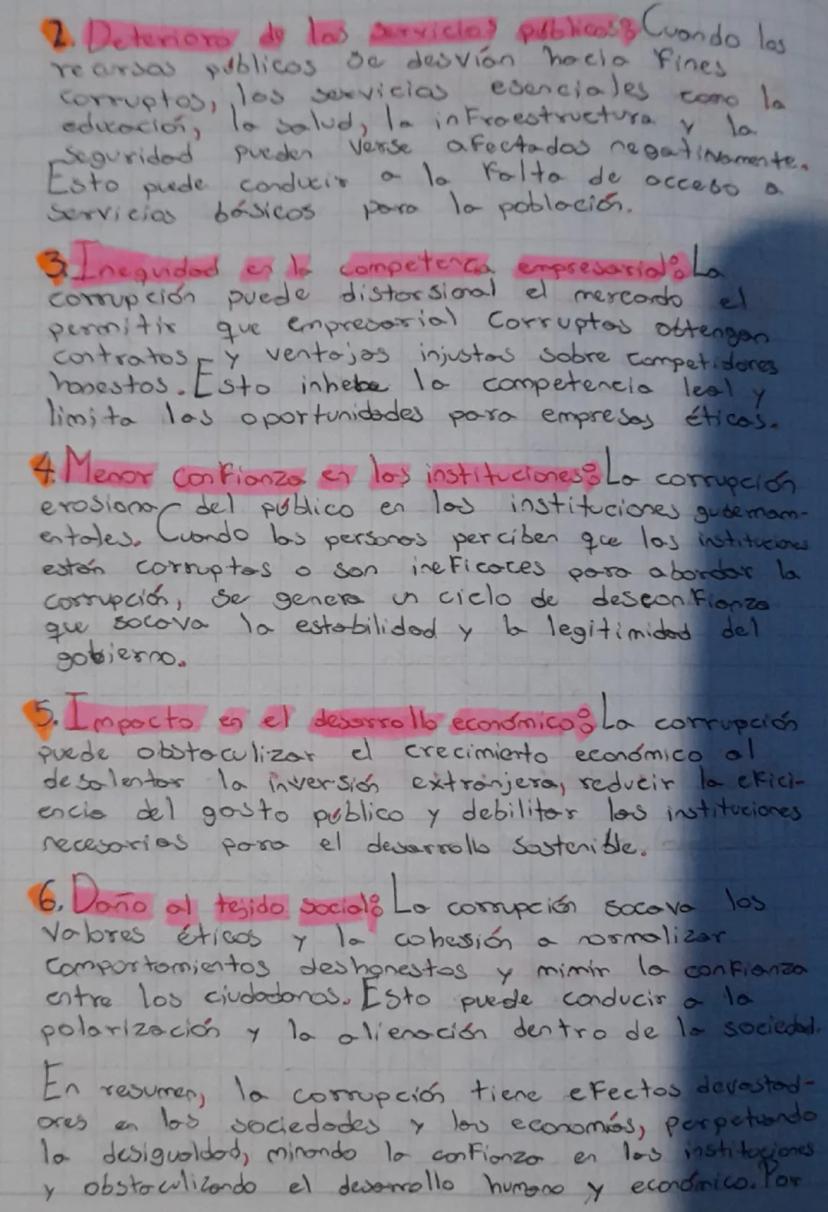 2. Deterioro de los servicios públicos: Cuando los
recursos públicos se desvían hacia fines
corruptos, los servicios esenciales como la
educación, la salud, la infraestructura y la
seguridad pueden verse afectados negativamente.
Esto puede conducir a la falta de acceso a
servicios básicos para la población.
3. Inequidad en la competencia empresarial: La
corrupción puede distorsional el mercado el
permitir que empresarial corruptos obtengan
contratos y ventajas injustas sobre competidores
honestos. Esto inhebe la competencia leal y
limita las oportunidades para empresas éticas.
4. Menor confianza en las instituciones: La corrupción
erosiona del público en las instituciones gubernam-
entales. Cuando las personas perciben que las instituciones
están corruptas o son ineficaces para abordar la
corrupción, se genera un ciclo de desconfianza
que socava la estabilidad y la legitimidad del
gobierno.
5. Impacto en el desarrollo económico: La corrupción
puede obstaculizar el crecimiento económico al
desalentar la inversión extranjera, reducir la efici-
encia del gasto público y debilitar las instituciones
necesarias para el desarrollo sostenible.
6. Daño al tejido social: La corrupción socava los
valores éticos y la cohesión a normalizar
comportamientos deshonestos y mimir la confianza
entre los ciudadanos. Esto puede conducir a la
polarización y la alienación dentro de la sociedad.
En resumen, la corrupción tiene efectos devastad-
ores en las sociedades y las economías, perpetuando
la desigualdad, minando la confianza en las instituciones
y obstaculizando el desarrollo humano y económico. Por